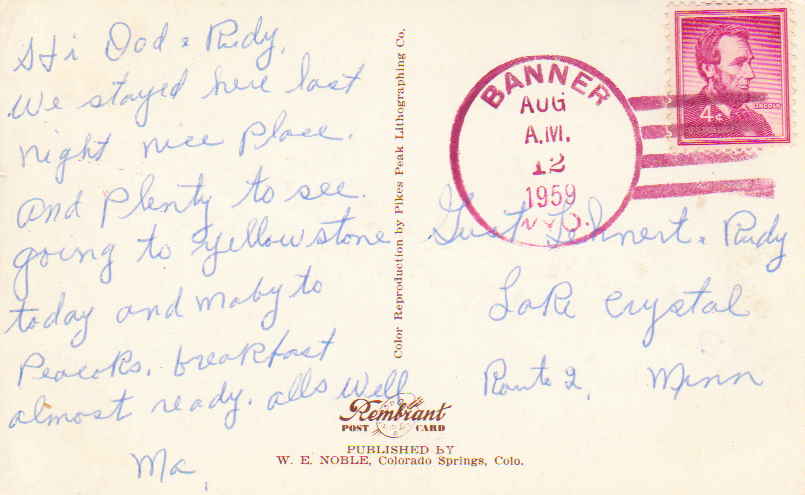 Hi Dad & Rudy,
We stayed here last
night nice place.
and plenty to see.
going to yellowstone
today and maby to
Peacocks. breakfast
almost ready. alls well
Ma,
Color Reproduction by Pikes Peak Lithographing Co.
BANNER
AUG
A.M.
12
1959
WYO.
LINCOLN
4¢
U.S. POSTAGE
Gust Lehnert & Rudy
Lake Crystal
Route 2, Minn
Rembrant
POST CARD
PUBLISHED BY
W. E. NOBLE, Colorado Springs, Colo.